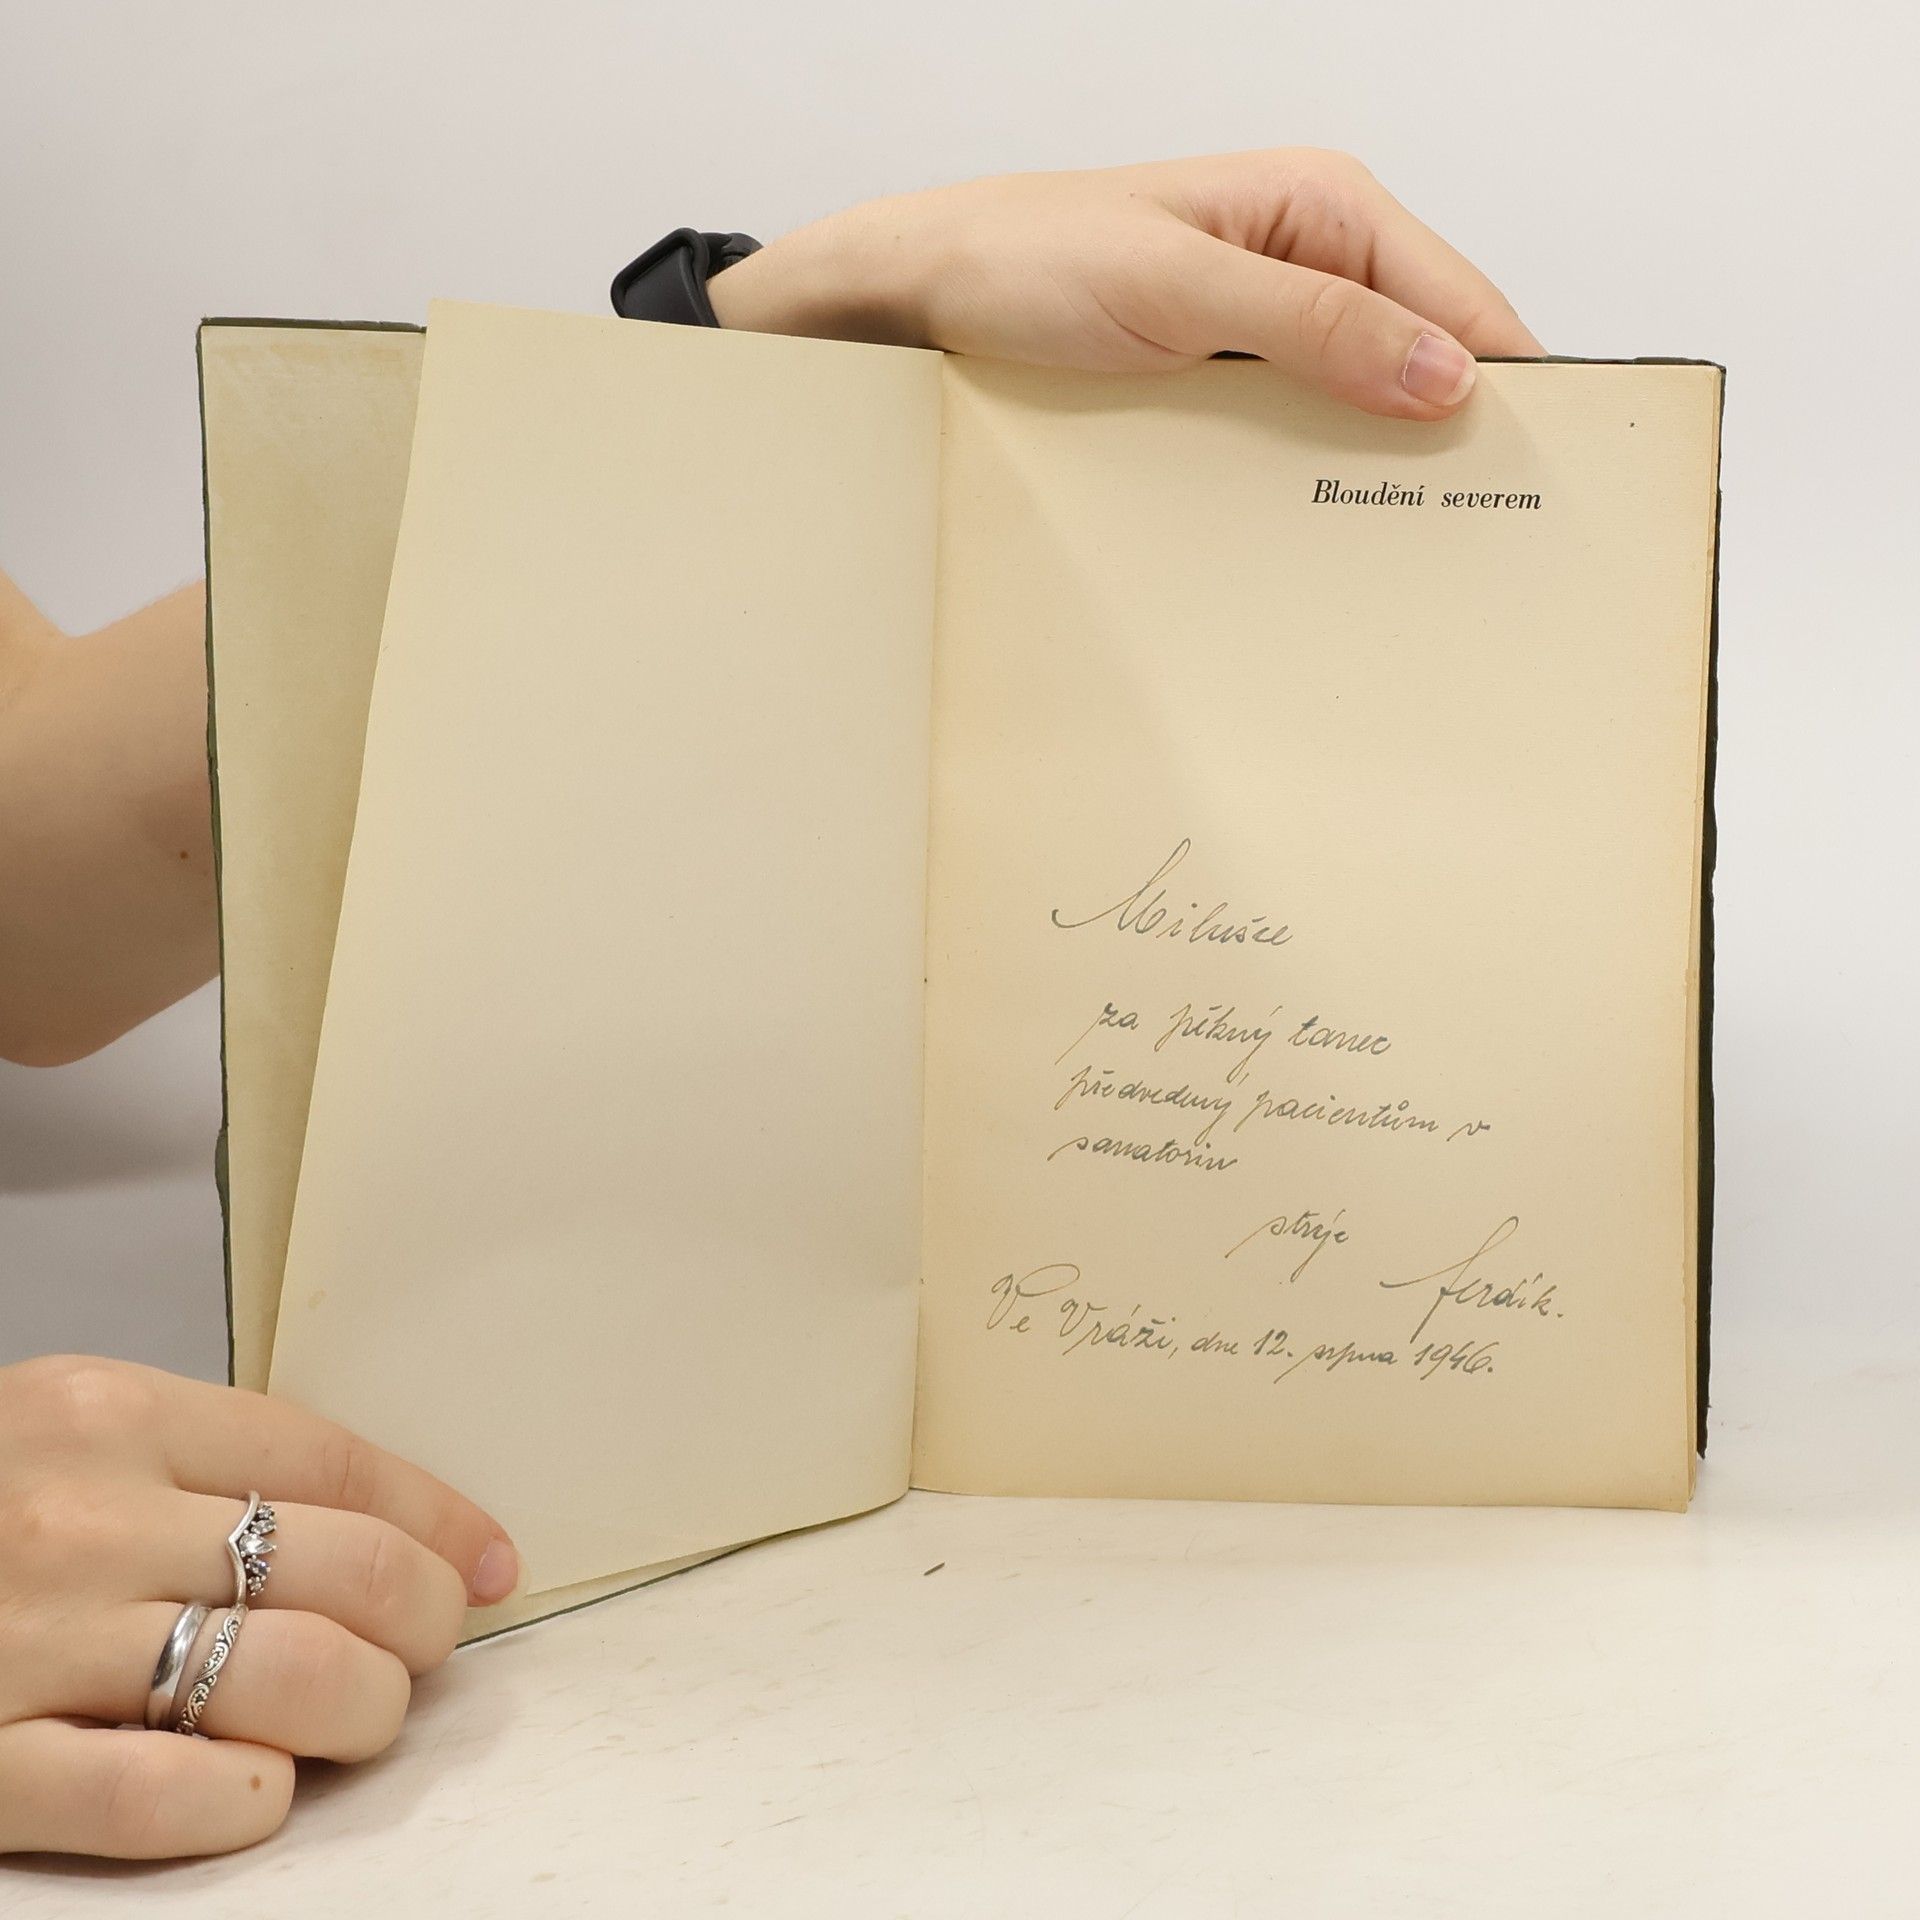 Bloudění severem
Milušce
za pěkný tanec
předvedený pacientům v
sanatoriu
strýc
Ferdík.
Ve Vráži, dne 12. srpna 1946.